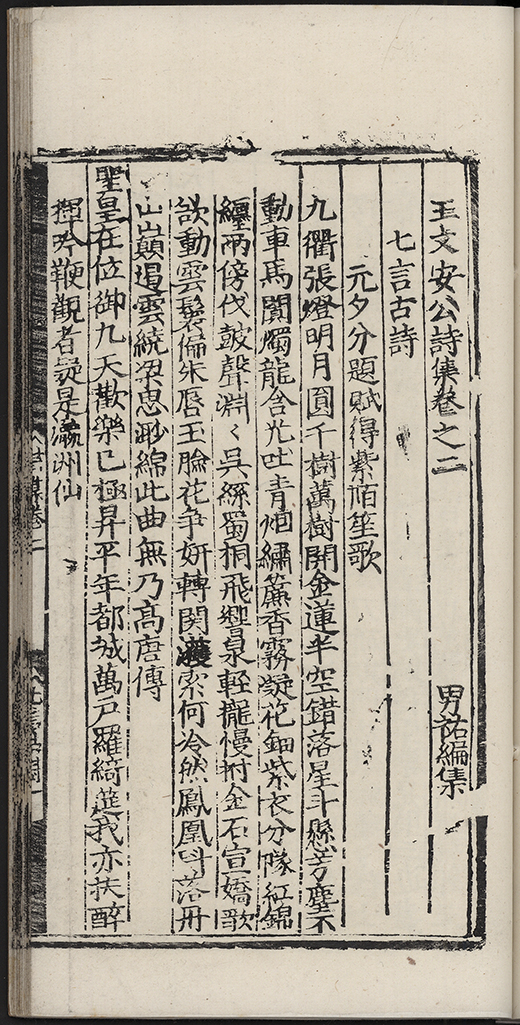 王文安公詩集卷之二
男祐編集
七言古詩
元夕分題賦得紫陌笙歌
九衢張燈明月圓千樹萬樹開金蓮半空錯落星斗懸芳塵不
動車馬闐燭龍含光吐青烟繡簾香霧凝花鈿紫衣分隊紅錦
纏兩傍伐鼓聲淵〻吳絲蜀桐飛響泉輕攏慢拊金石宣嬌歌
欲動雲鬟偏朱唇玉臉花爭妍轉関濩索何泠然鳳凰叫落丹
山巔遏雲繞梁思渺綿此曲無乃高唐傳
聖皇在位御九天歡樂已極昇平年都城萬戶羅綺筵我亦扶醉
揮吟鞭觀者疑是瀛洲仙